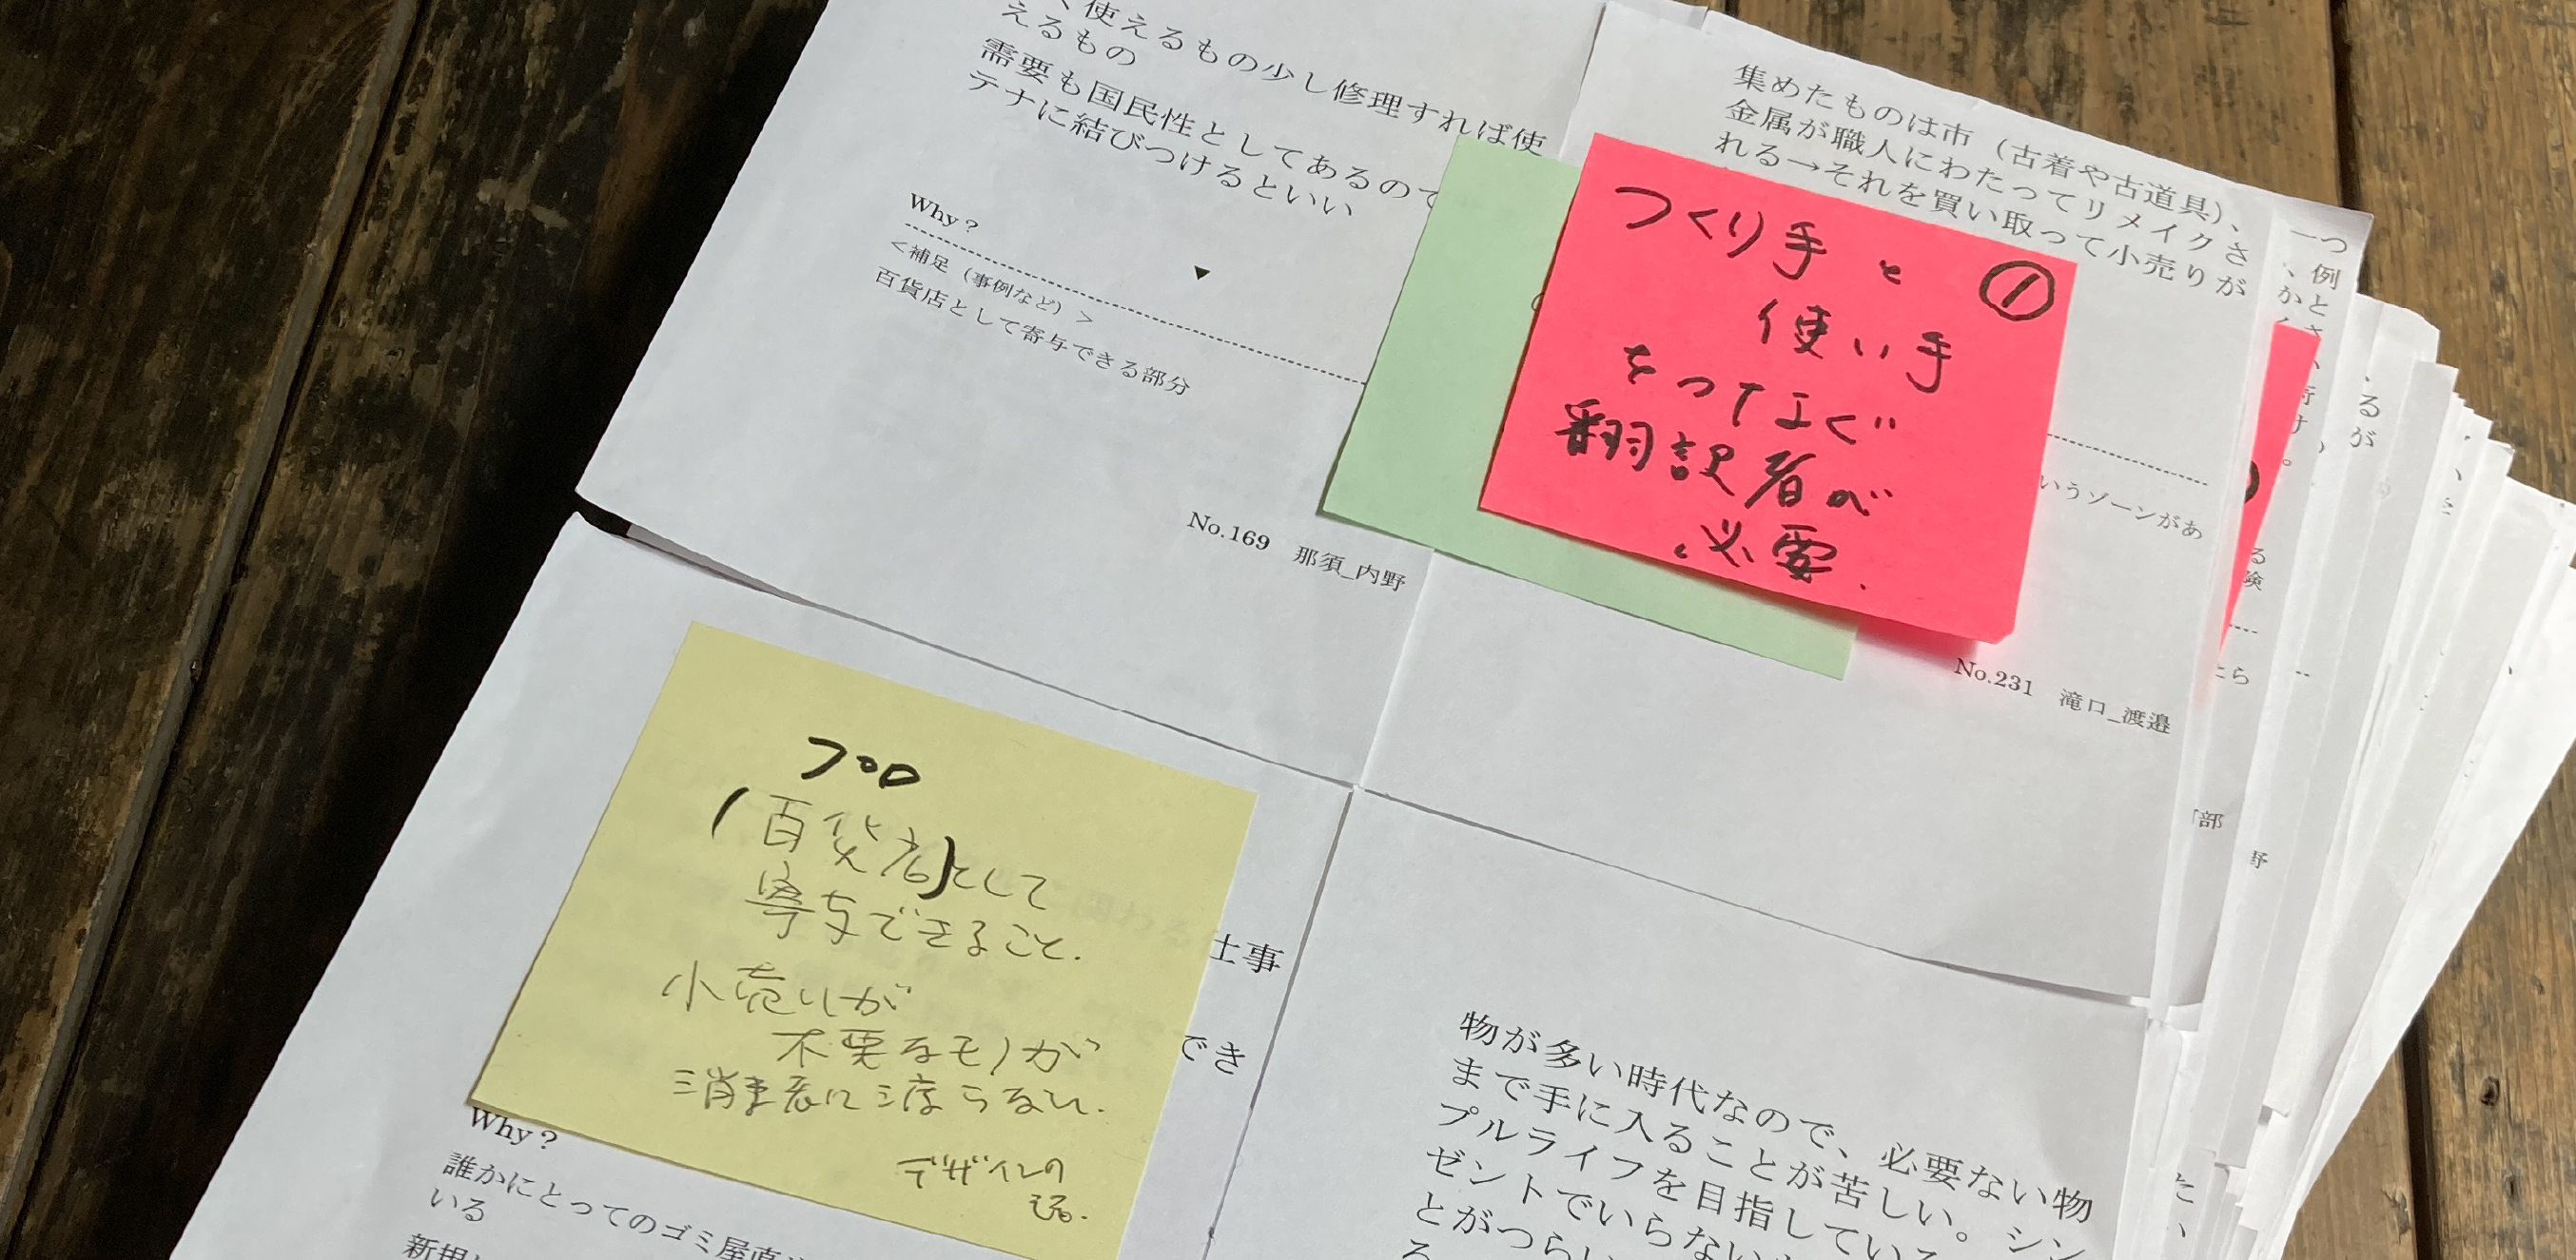 使えるもの少し修理すれば使
えるもの
需要も国民性としてあるので
テナに結びつけるといい
Why？
<補足（事例など）>
百貨店として寄与できる部分
No.169 那須_内野
集めたものは市（古着や古道具）、
金属が職人にわたってリメイクさ
れる→それを買い取って小売りが
①
つくり手と
使い手
をつなぐ
翻訳者が
必要.
いうゾーンがあ
No.231 滝口_渡邉
プロ
(百貨店)として
寄与できること.
小売りが
不要なモノが
消費者に渡らない.
デザインの
士事
でき
Why？
誰かにとってのゴミ屋直
いる
新規
物が多い時代なので、必要ない物
まで手に入ることが苦しい。シン
プルライフを目指している
ゼントでいらない
とがつらい
る
一つ
例
かと
るが
険
とら
「部
野